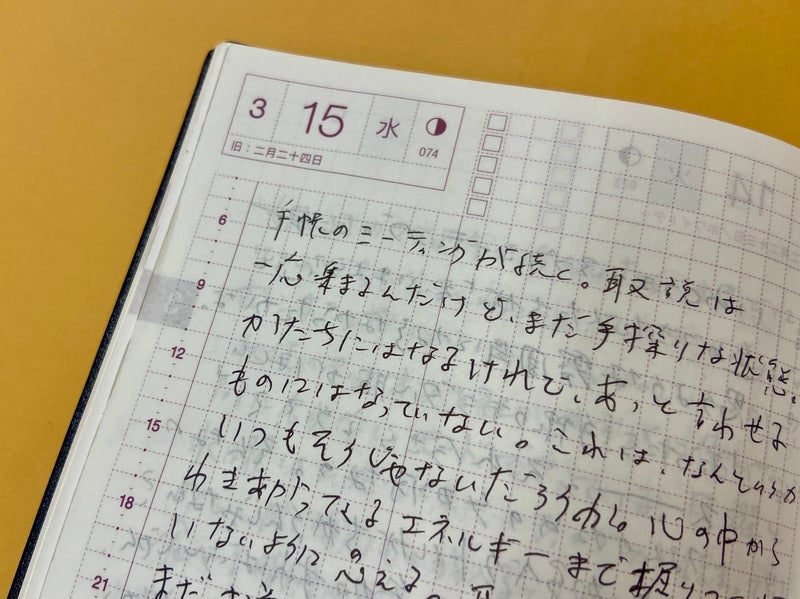 3 15 水
旧：二月二十四日 074
14
6
9
12
15
18
21
手帳のミーティングが続く。取説は
一応集まるんだけど、まだ手探りな状態。
かたちにはなるけれど、あっと言わせる
ものにはなっていない。これは、なんというか
いつもそうじゃないだろうか。心の中から
わきあがってくるエネルギーまで掘り
いないように思える。
まだ